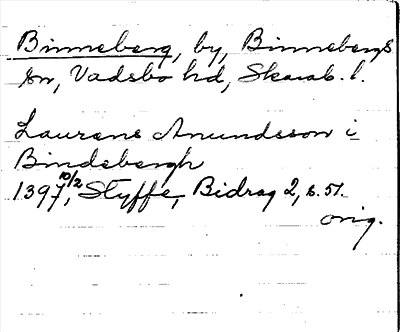 Binneberg, by, Binnebergs
sn, Vadsbo hd, Skarab. l.
Laurens Amundsson i
Bindsbergh
1397 10/2, Styffe, Bidrag 2, s. 51.
orig.